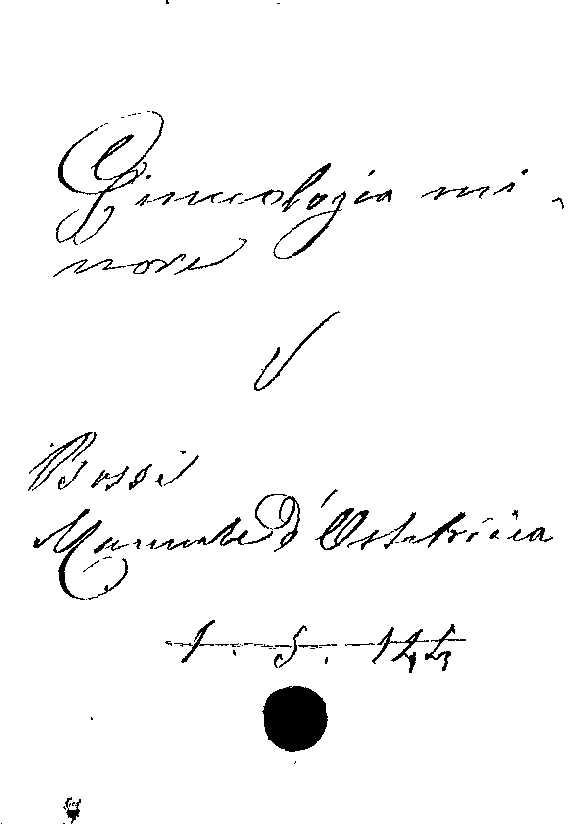 Ginecologia mi-
nore
V
Bossi
Manuale d'Ostetricia
1. 5. 144